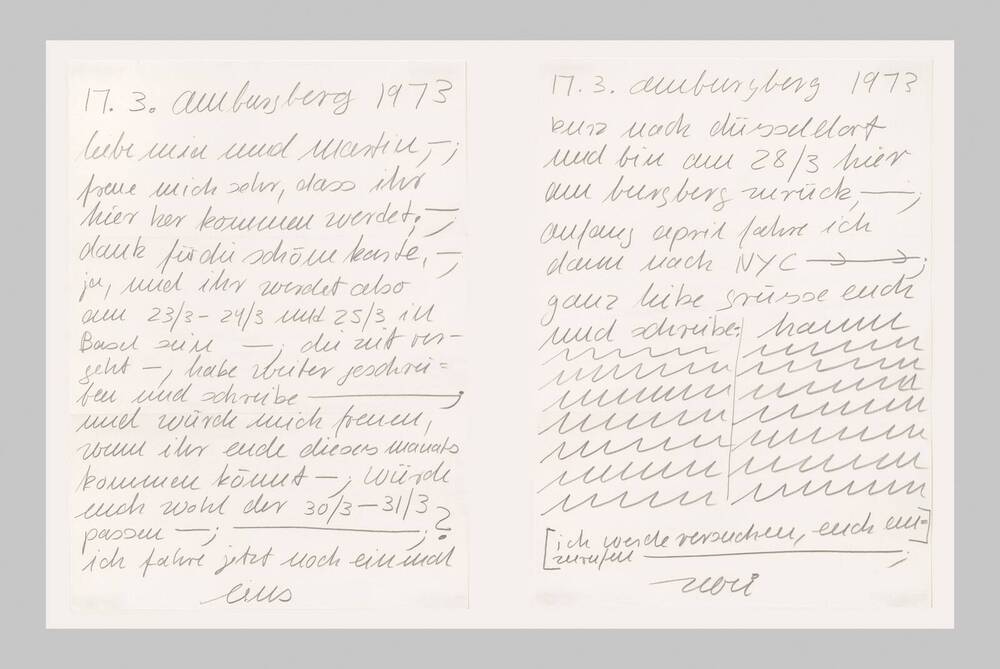 17. 3. amburgberg 1973
liebe mia und martin, —;
freue mich sehr, dass ihr
hier her kommen werdet, —;
dank für die schöne karte, —;
ja, und ihr werdet also
am 23/3 – 24/3 und 25/3 in
Basel sein —; die zeit ver-
geht —, habe weiter geschrie=
ben und schreibe ———;
und würde mich freuen,
wenn ihr ende dieses monats
kommen könnt —; würde
euch wohl der 30/3 — 31/3
passen —; ———;?
ich fahre jetzt noch einmal
eins
17. 3. amburgberg 1973
kurz nach düsseldorf
und bin am 28/3 hier
am burgberg zurück, —;
anfang april fahre ich
dann nach NYC →→;
ganz liebe grüsse euch
und schreibe: hanne
[ich werde versuchen, euch an=]
zurufen ———;
zwei